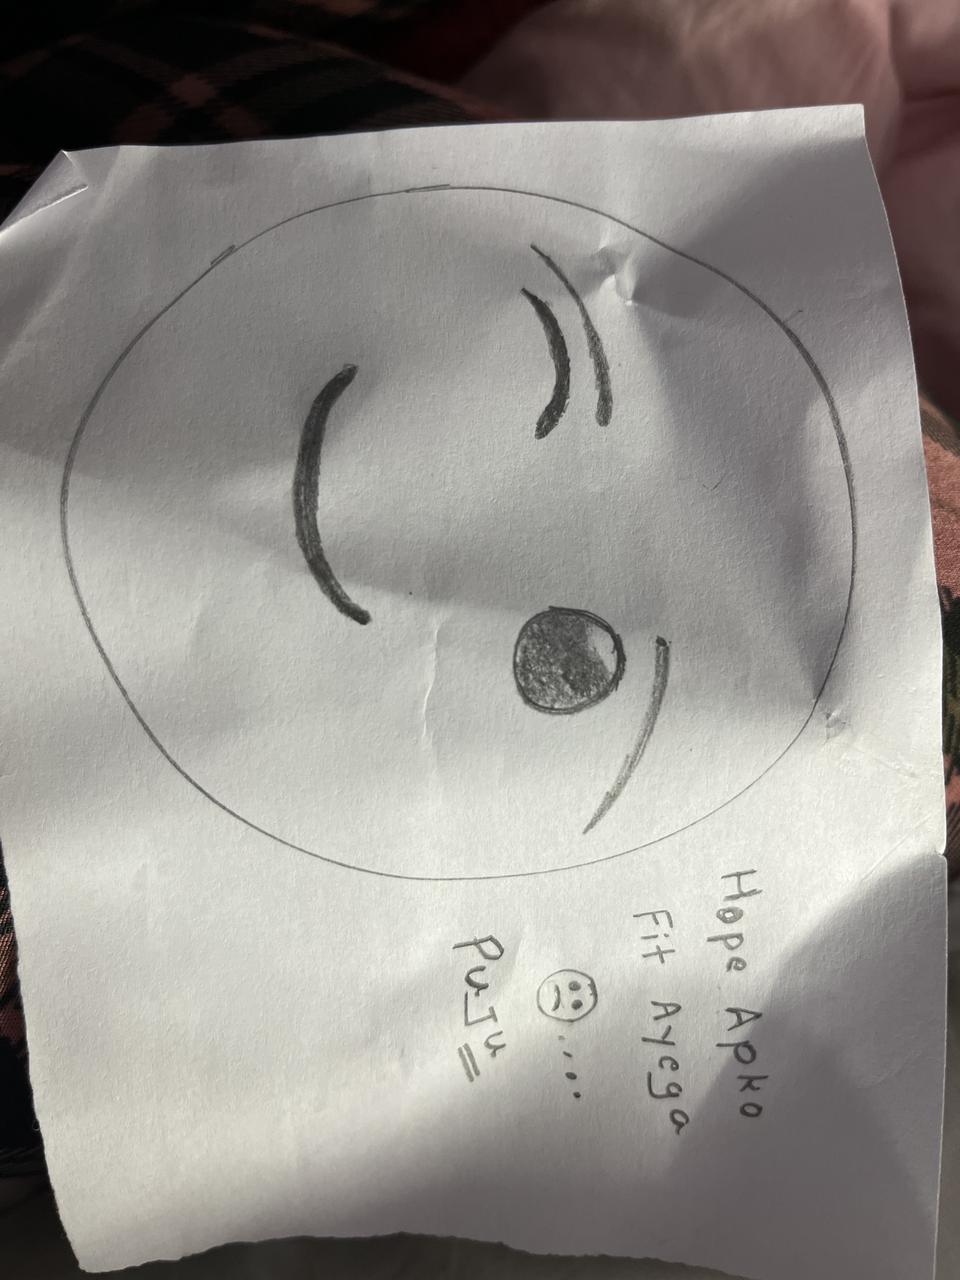 Hope Apko
Fit Ayega
PuJu